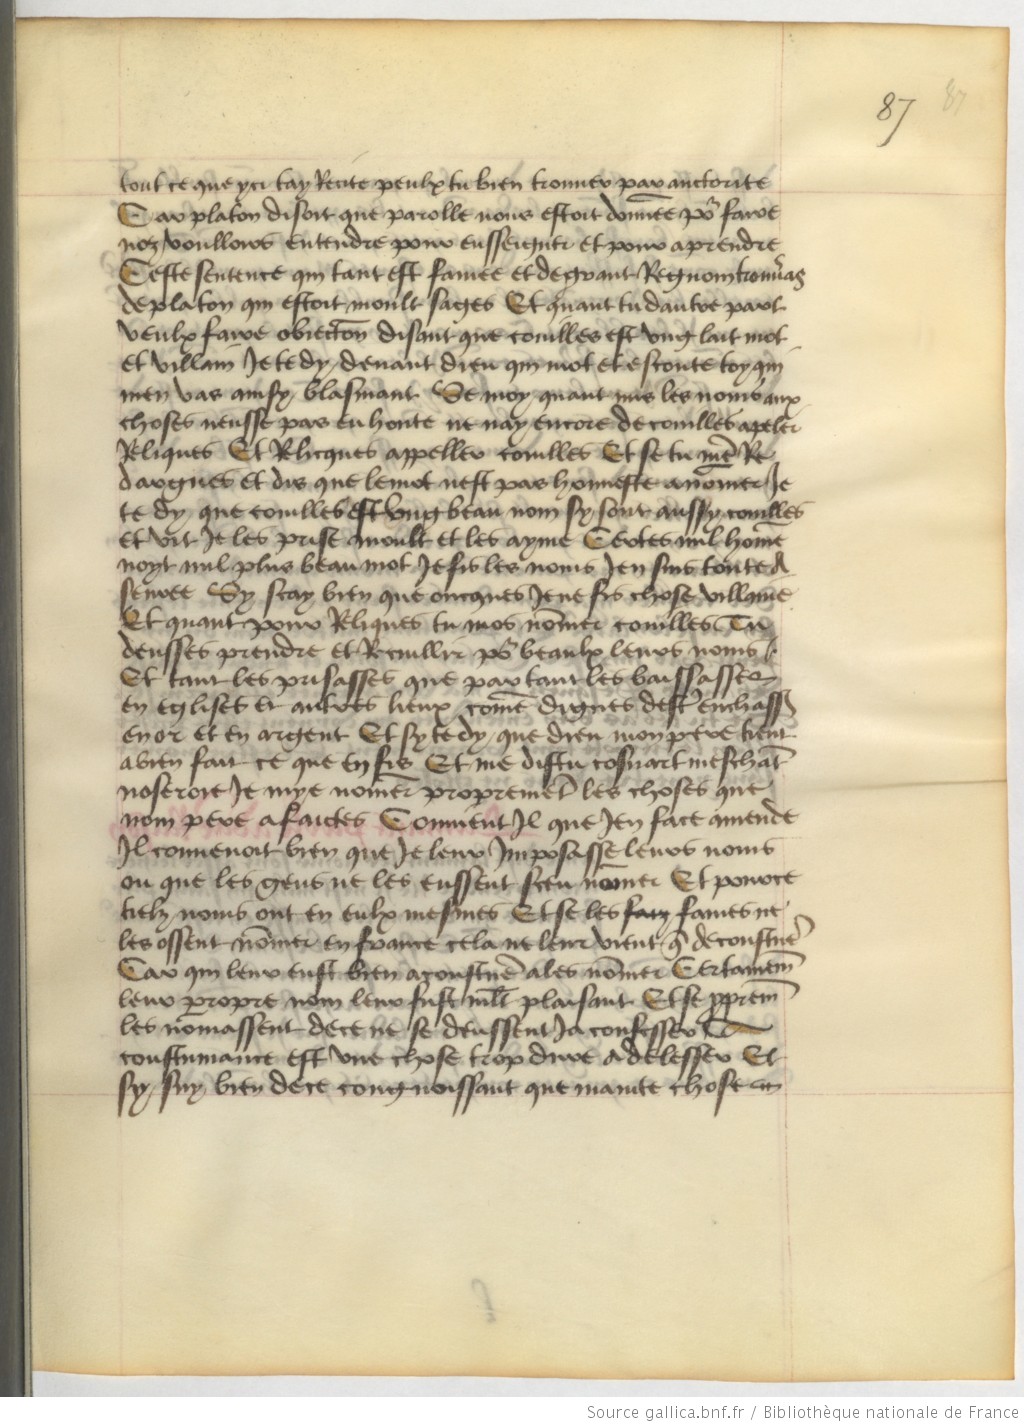 87
tout ce que yci tay Recite peulx tu bien trouver par auctorite
Car platon disoit que parolle nous estoit donnee po faire
noz voulloirs entendre pour enseigner et pour aprendre
Ceste sentence qui tant est famee et de grant Regnom trouvas
de platon qui estoit moult sages Et quant tu dautre part
veulx faire obiection disant que couilles est ung lait mot
et villain Je te dy devant dieu qui mot et escoute toy qui
men vas ainsy blasmant Se moy quant mis les noms aux
choses neusse pas eu honte ne nay encore de couilles apeler
Reliques Et Relicques appeller couilles Et se tu me Re
dargues et dis que le mot nest pas honneste a nomer Je
te dy que couilles est ung beau nom sy sont aussy couilles
et vit Je les prise moult et les ayme Certes nul home
noyt nul plus beau mot Je fis les noms Jen suis toute A
seuree Sy scay bien que oncques Je ne fis chose villaine
Et quant pour Reliques tu mos nomer couilles Tu
deusses prendre et Recuillir po beaulx leurs noms
Et tant les prisasses que par tant les baissasses
en eglises et autres lieux come dignes destr enchass
en or et en argent Et sy te dy que dieu mon pere tient
a bien fait ce que en fis Et me distu cosnart meschat
noseroie Je mye nomer propremet les choses que
mon pere a faictes Convient Il que Jen face amende
Il convenoit bien que Je leur Imposasse leurs noms
ou que les gens ne les eussent sceu nomer Et pource
tielz noms ont en eulx mesmes Et se les fames ne
les ossent nomer en france cela ne leur vient q de coustue
Car qui leur eust bien acoustue a les nomer Certainem
leur propre nom leur fust mlt plaisant Et se pprem
les nomassent de ce ne se deussent Ja confesser
coustumance est une chose trop dure a delesser Et
sy suy bien de ce congnoissant que mainte chose
Source gallica.bnf.fr / Bibliothèque nationale de France